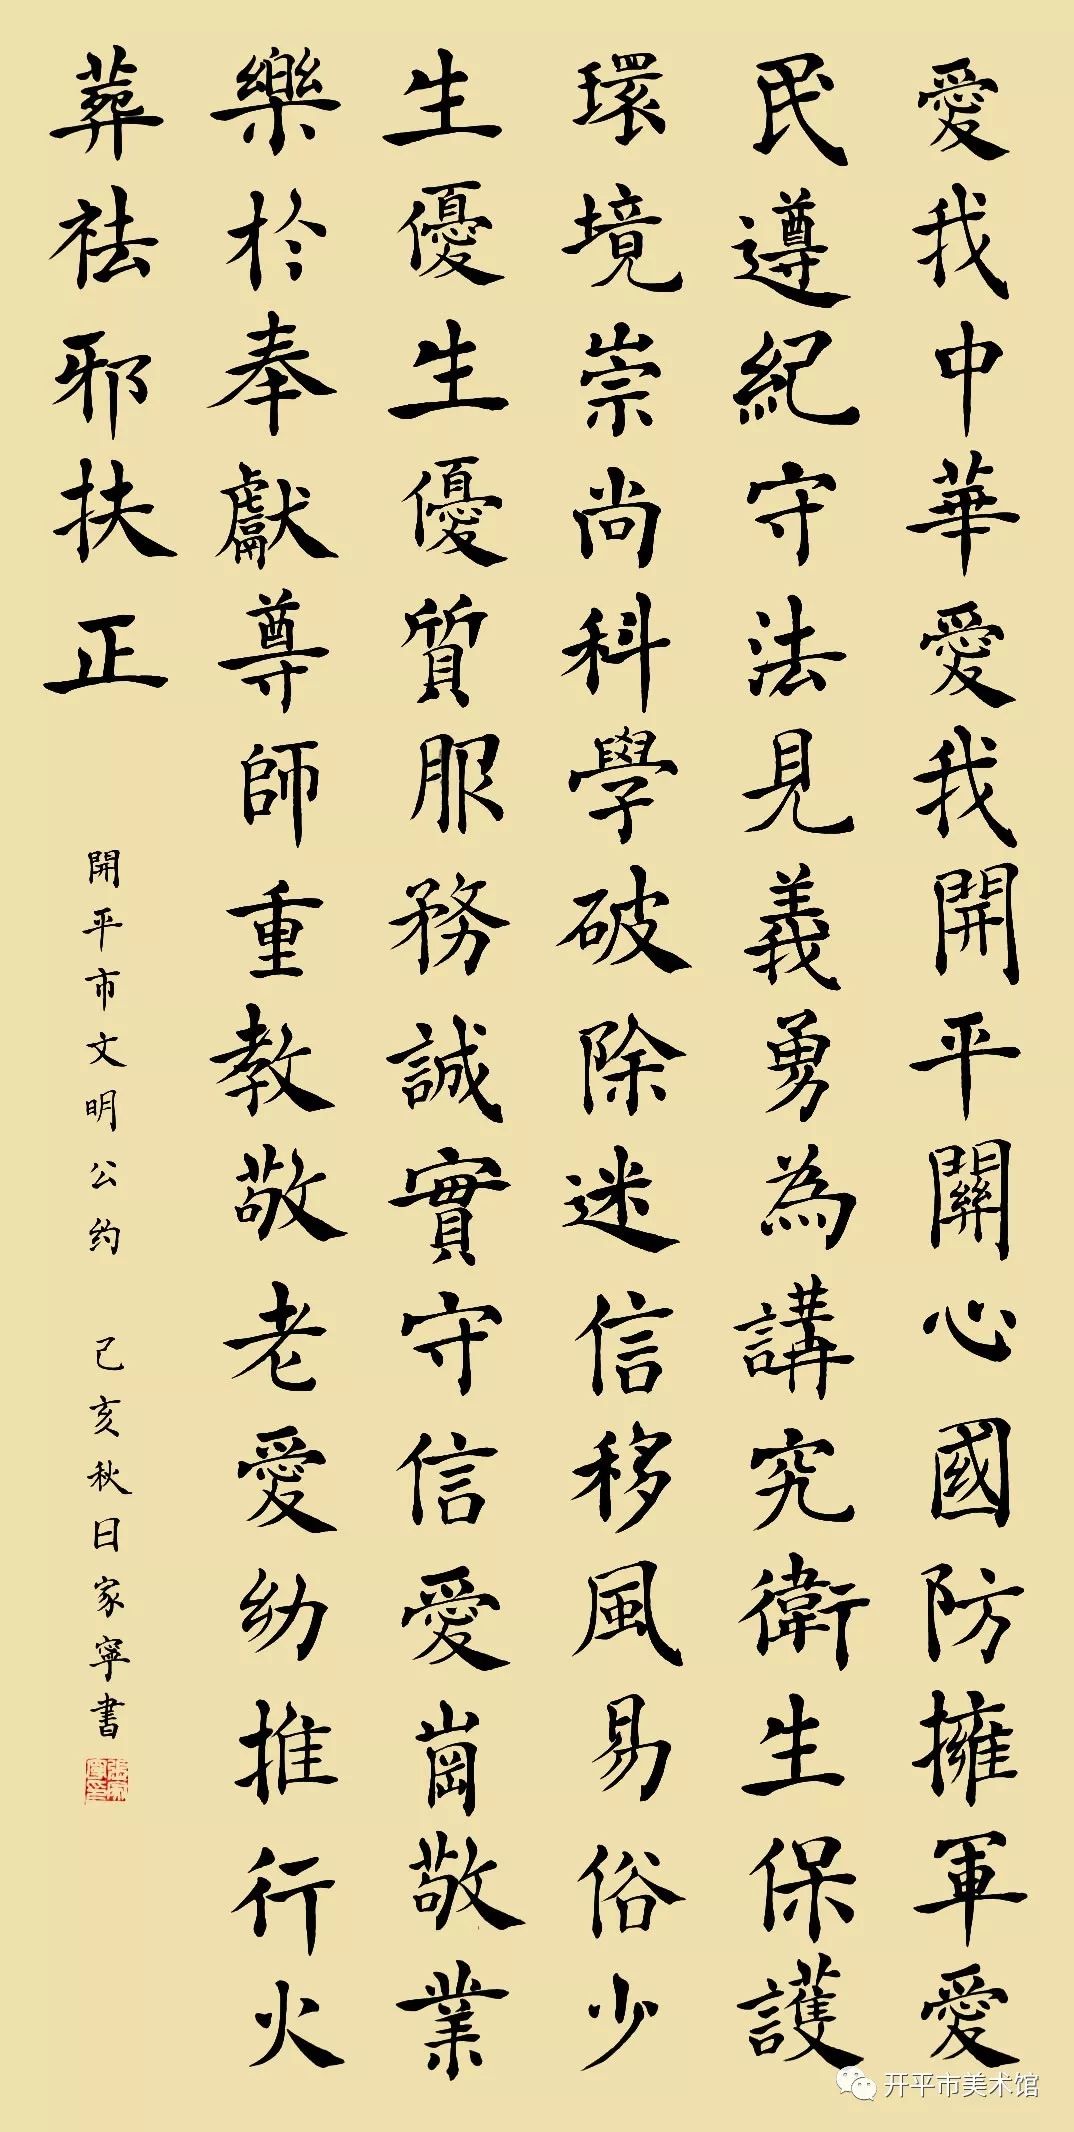 愛我中華愛我開平關心國防擁軍愛
民遵紀守法見義勇為講究衛生保護
環境崇尚科學破除迷信移風易俗少
生優生優質服務誠實守信愛崗敬業
樂於奉獻尊師重教敬老愛幼推行火
葬祛邪扶正
開平市文明公约 己亥秋日家寧書
开平市美术馆